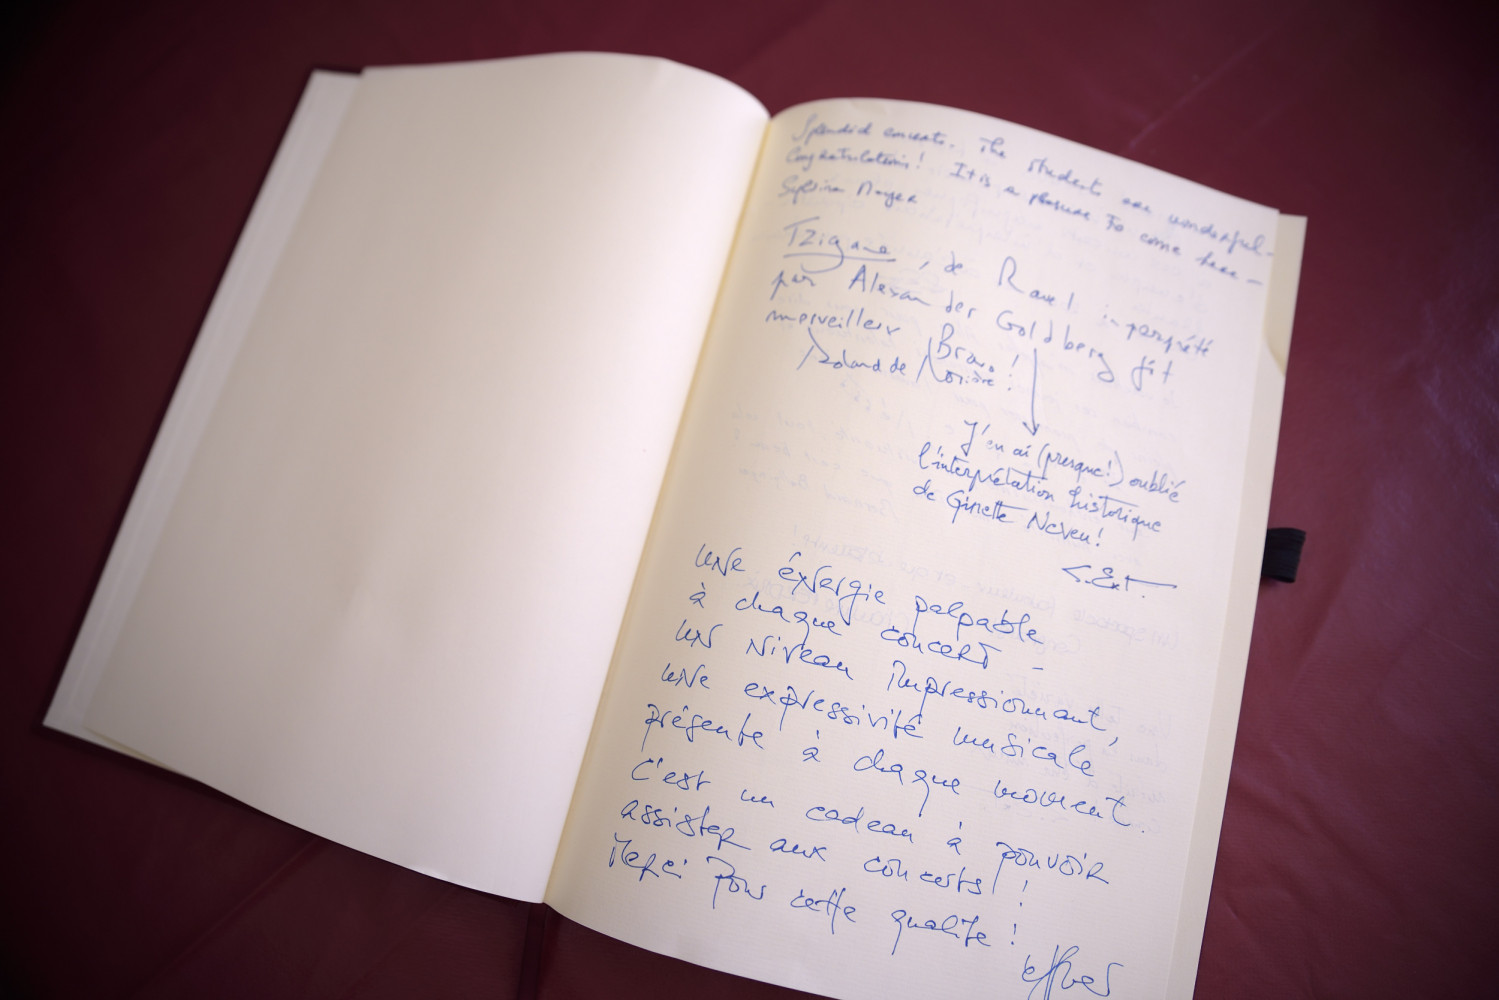 Splendid concerts. The students are wonderful -
Congratulations! It is a pleasure to come here -
Sylvina Mayer
Tzigane, de Ravel interprété
par Alexander Goldberg fut
merveilleux Bravo!
Roland de
J'en ai (presque!) oublié
l'interprétation historique
de Ginette Neveu!
une énergie palpable
à chaque concert -
un niveau impressionnant,
une expressivité musicale
présente à chaque moment.
C'est un cadeau à pouvoir
assister aux concerts!
Merci pour cette qualité!